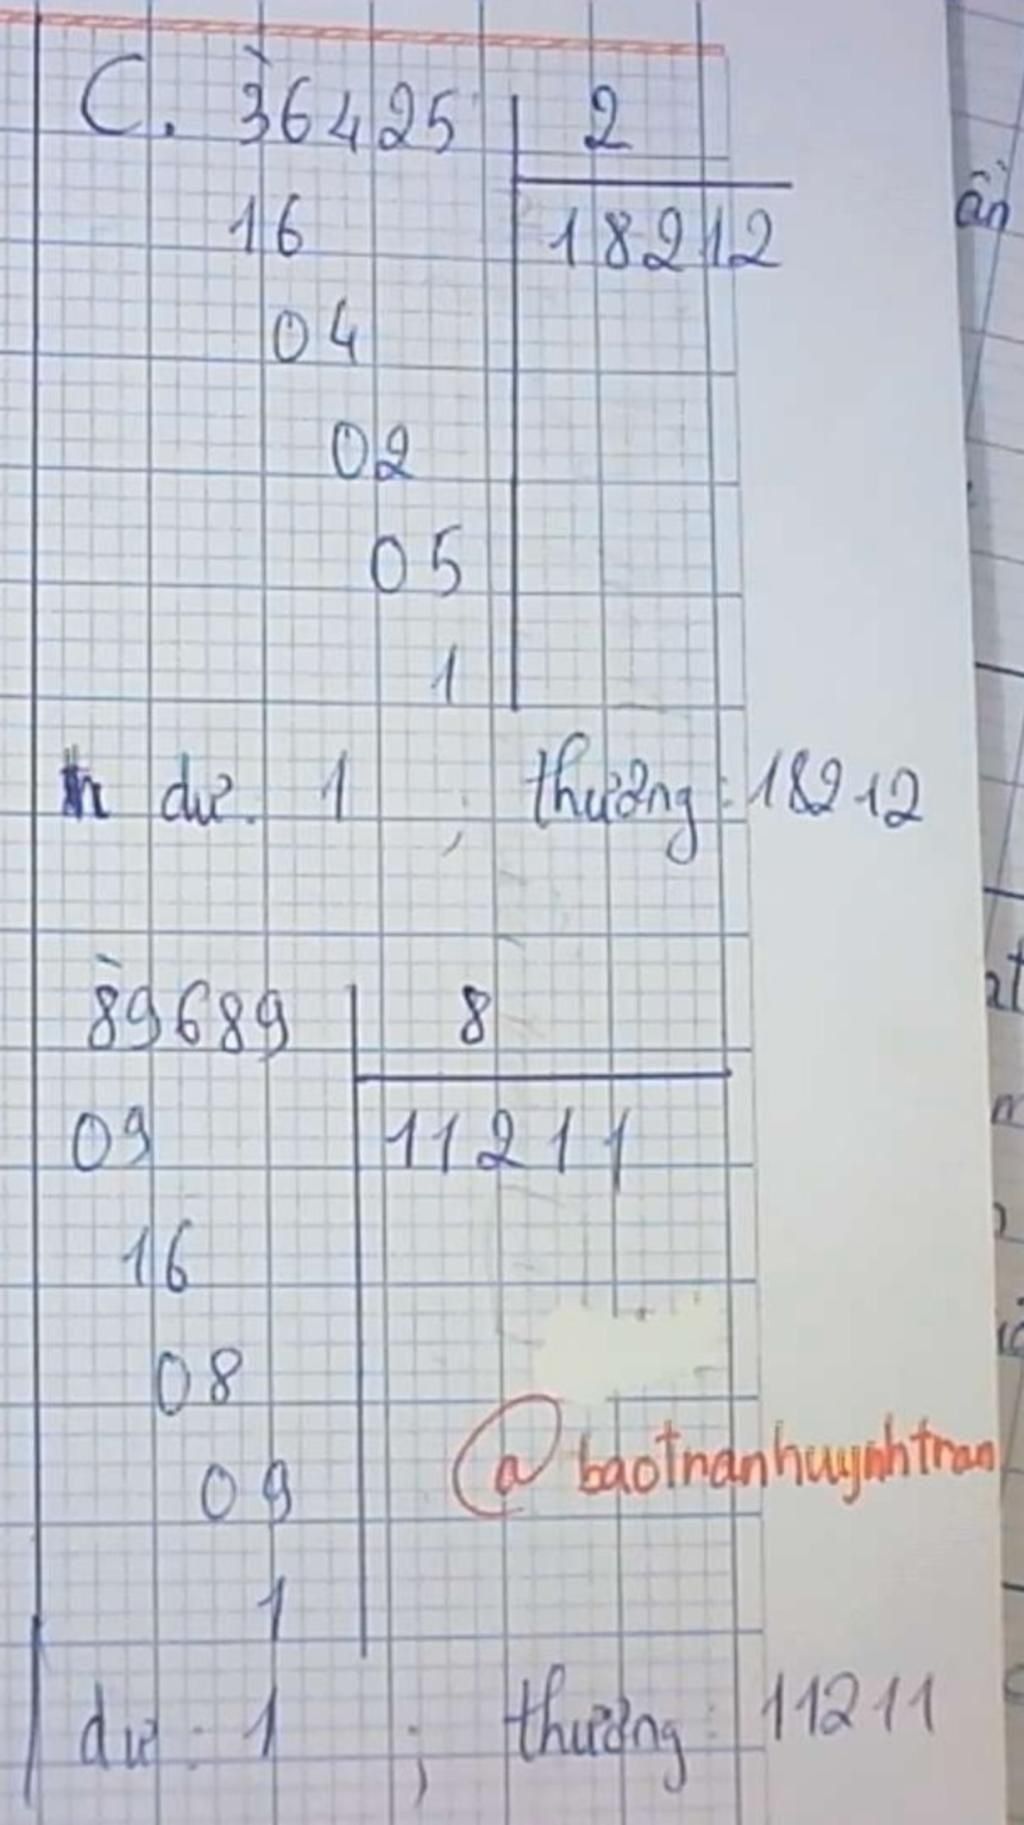 C. 36425 2
16 18212
04
02
05
1
dư. 1 ; thương: 18212
89689 8
09 11211
16
08
09
1
@baotrranhuynhtran
dư: 1 ; thương: 11211